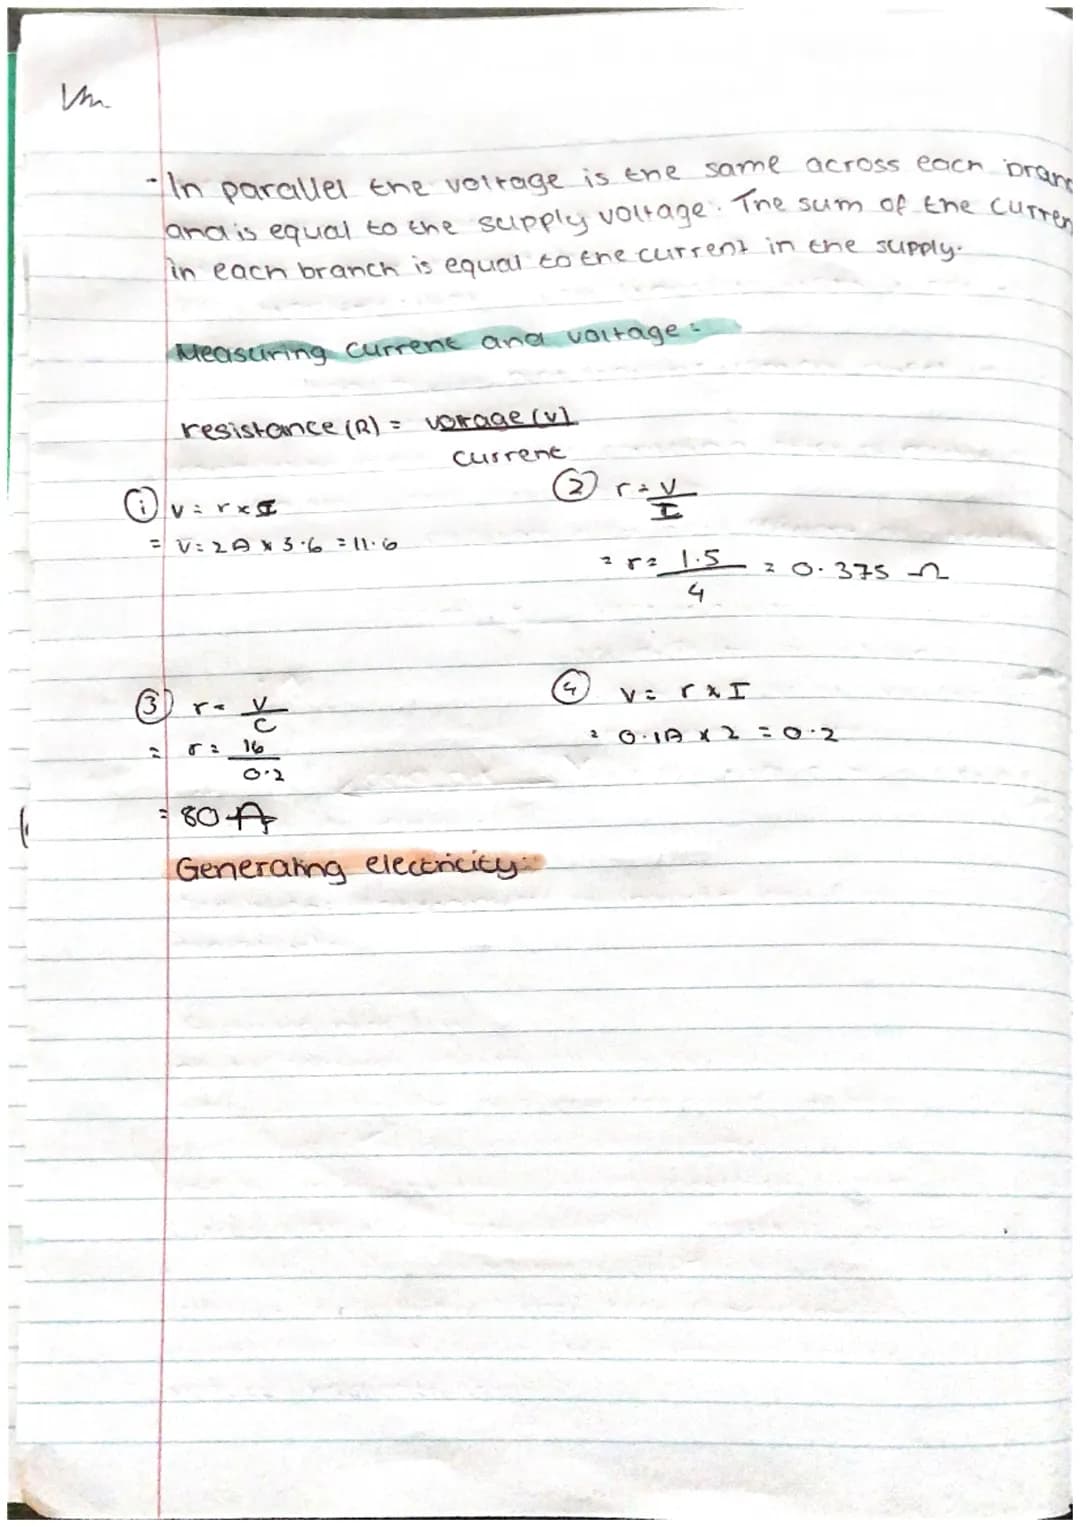 - In parallel the voltage is the same across each bran
and is equal to the supply voltage. The sum of the curren
in each branch is equal to the current in the supply.
Measuring current and voltage:
resistance (R) = voltage (v)
current
① v = r x I
= v = 2A x 3.6 = 11.6
② r = v
I
= r = 1.5 = 0.375 Ω
4
③ r = v
C
= r = 16
0.2
= 80
④ v = r x I
= 0.1A x 2 = 0.2
Generating electricity: